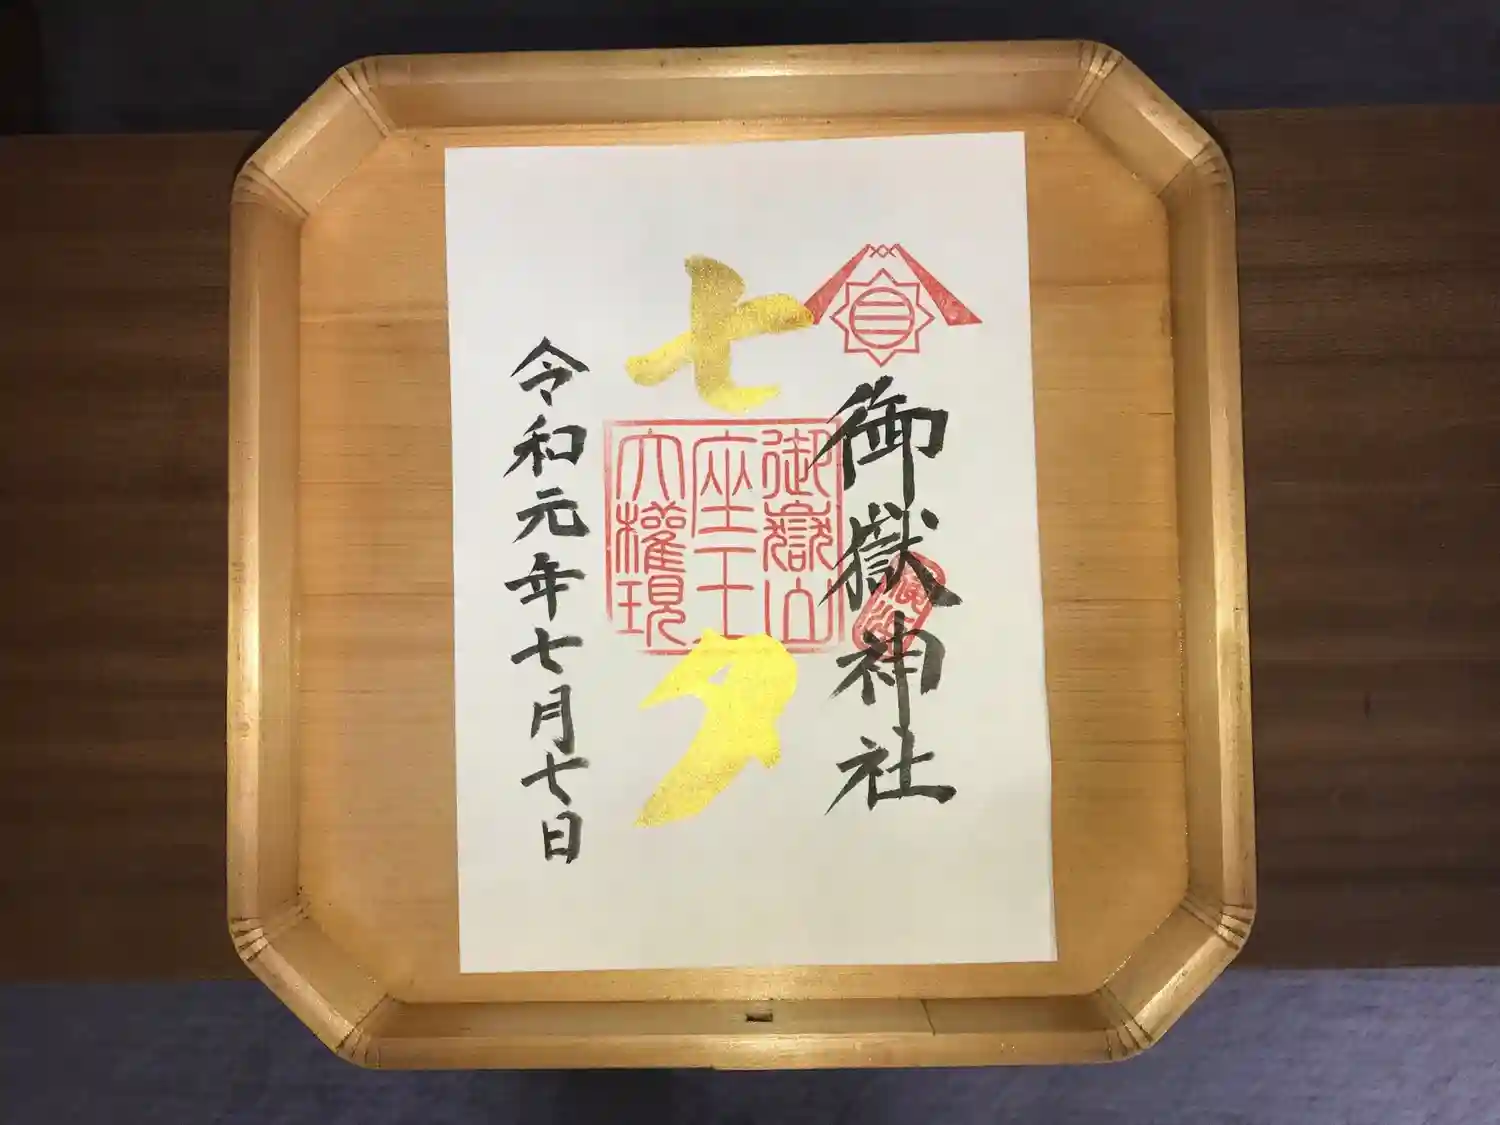 御嶽神社
七夕
御嶽山
座王
大權現
令和元年七月七日